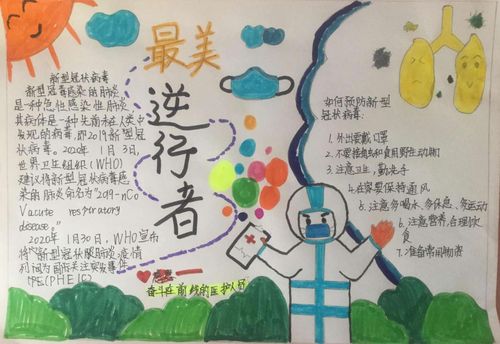 最美
逆行者
新型冠状病毒
新型冠毒感染的肺炎
是一种急性感染性肺炎
其病体是一种先前未在人类中
发现的病毒,即2019新型冠
状病毒。2020年 1月 3日,
世界卫生组织(WHO)
建议将新型冠状病毒感
染的肺炎命名为"2019-nCo
Vacute respiratory
disease。"
2020年 1月30日,WHO宣布
将 新型冠状 肺炎 疫情
列为国际关注突发事件
(PHEIC)
奋斗在前线的医护人员
如何预防新型
冠状病毒:
1.外出要戴口罩
2.不要接触和食用野生动物
3.注意卫生,勤洗手
4.在家要保持通风
5.注意多喝水、多休息、多运动
6.注意营养,合理饮
食
7.准备常用物资